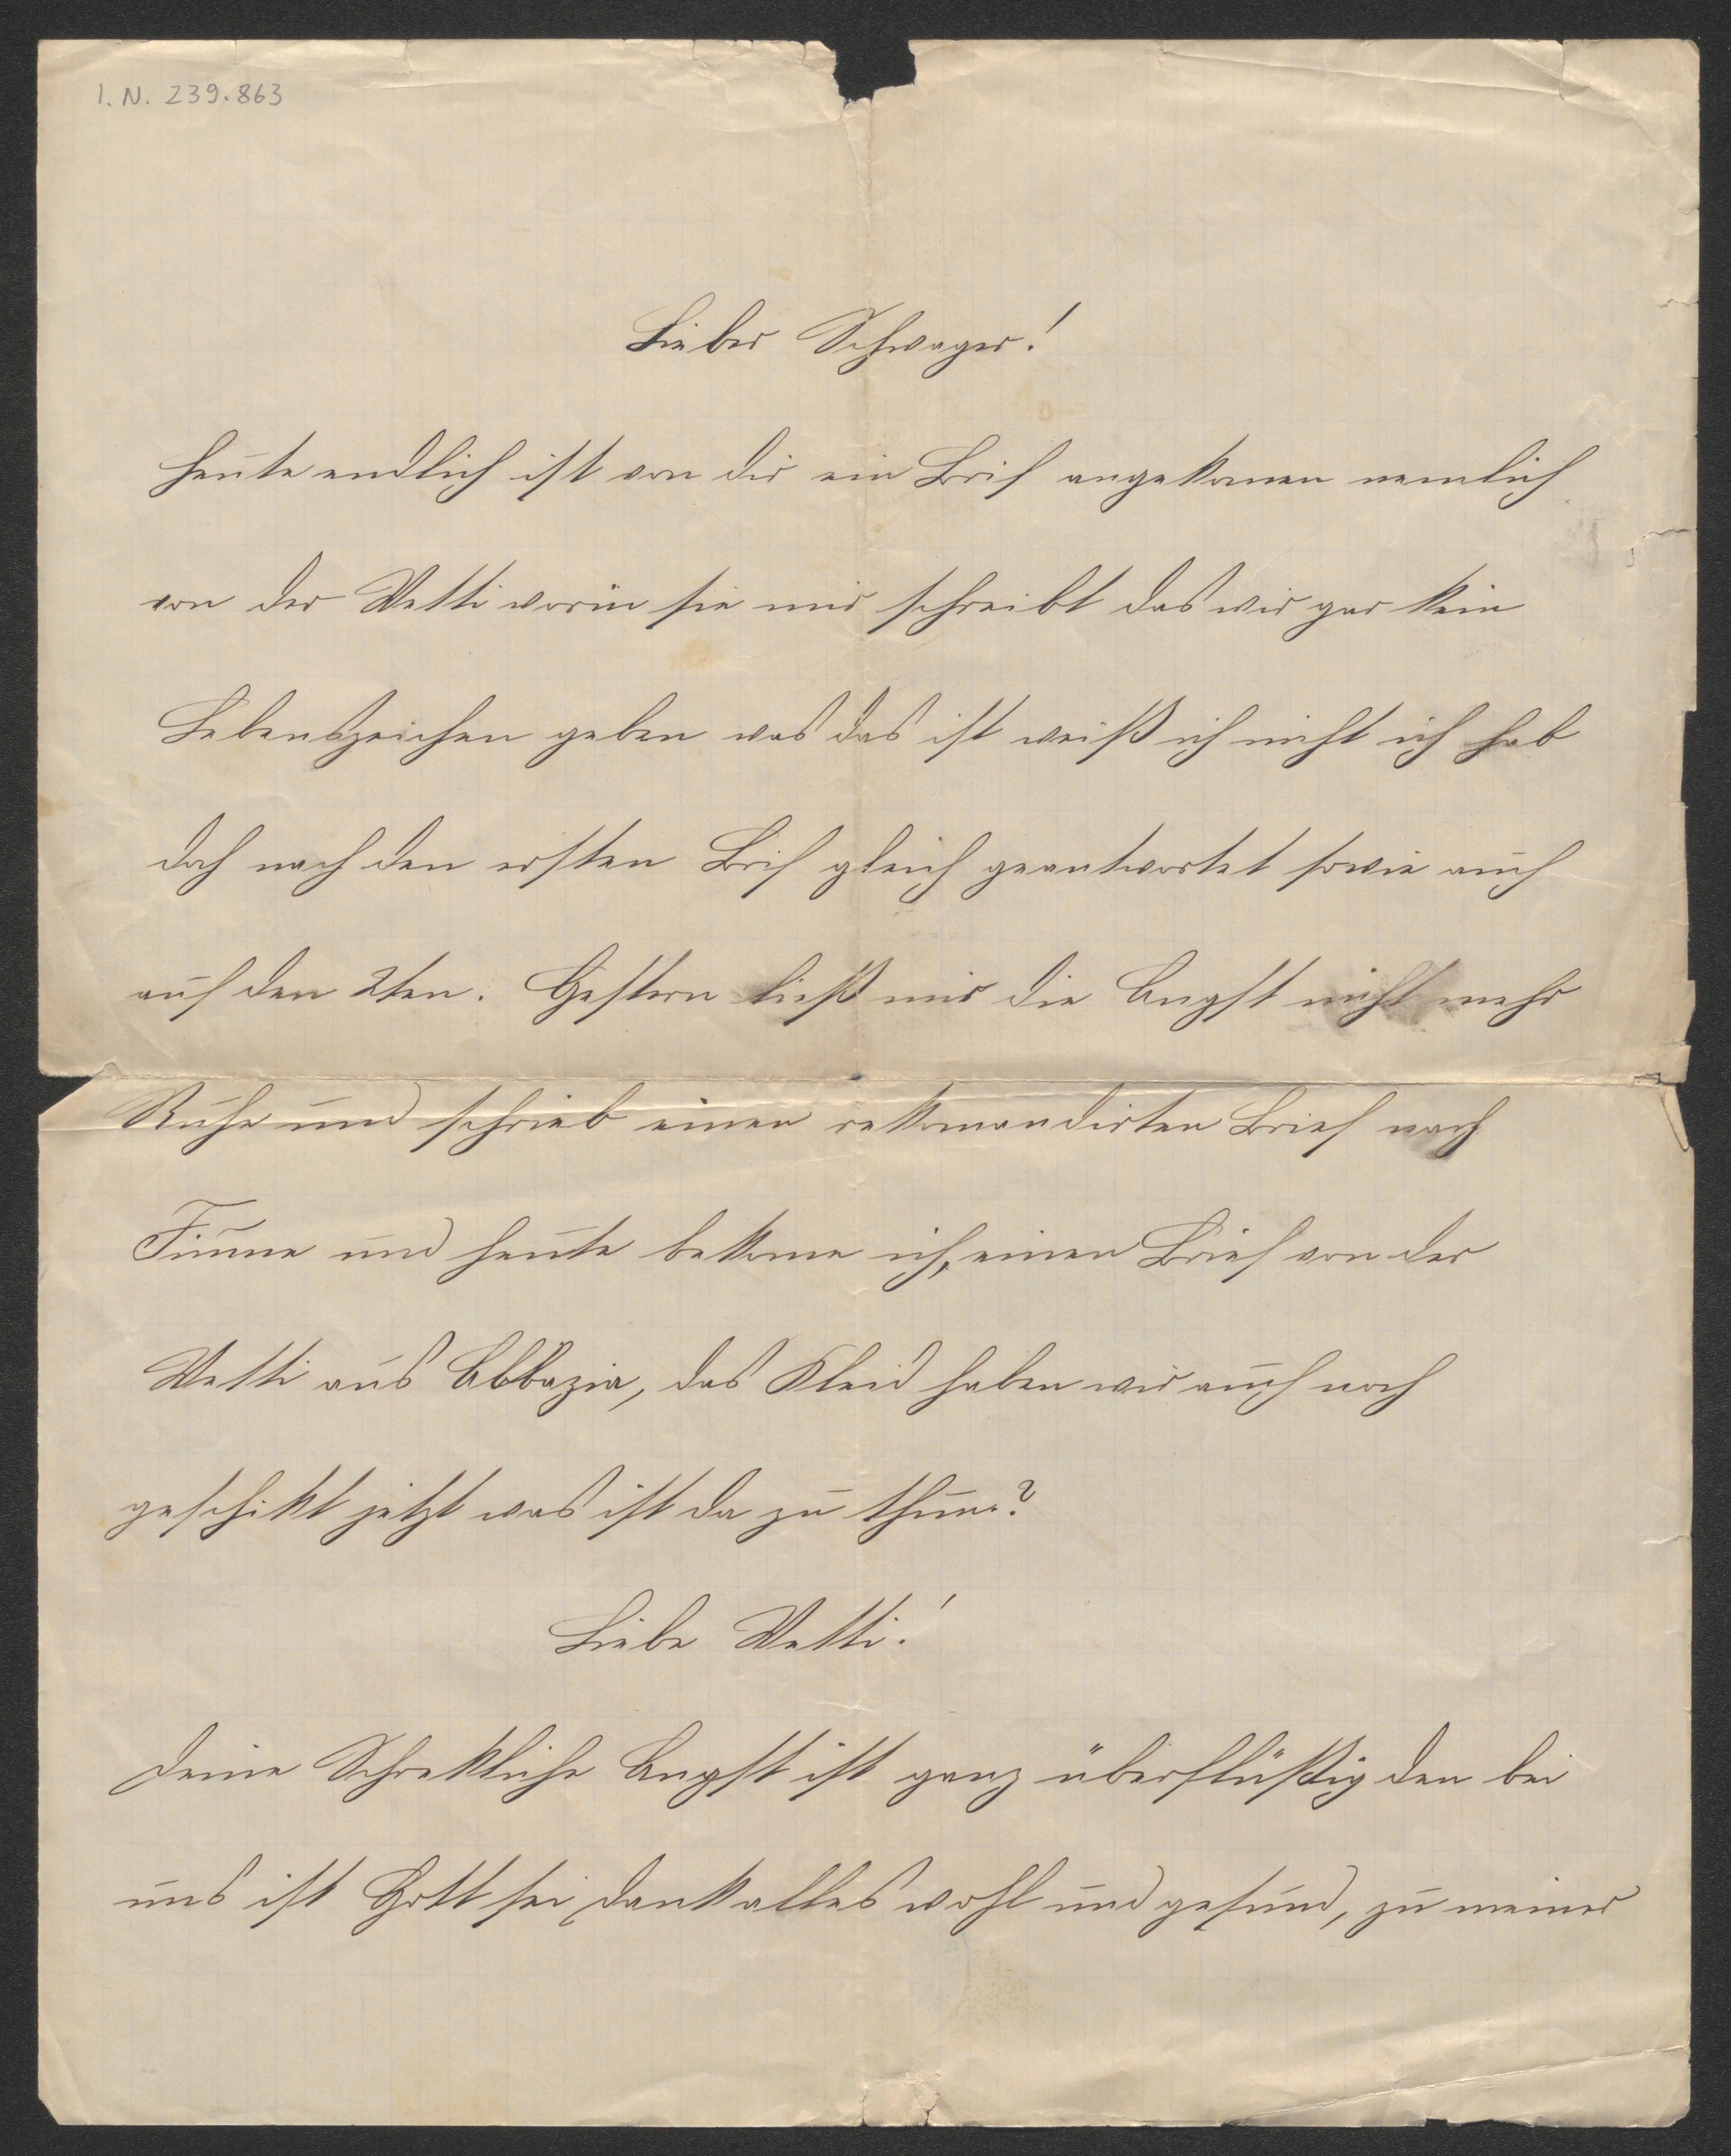 I. N. 239.863
Lieber Schwager!
Heute endlich ist von dir ein Brif angekomen nemlich
von der Netti worin sie mir schreibt das wir gar kein
Lebenszeichen geben was das ist weiß ich nicht ich hab
doch nach den ersten Brif gleich geantwortet sowie auch
auf den 2ten. Gestern ließ mir die Angst nicht mehr
Ruhe und schrieb einen rekomandirten Brief nach
Fiume und heute bekome ich, einen Brief von der
Netti aus Abbazia, das Kleid haben wir auch noch
geschikt jetzt was ist da zu thun?
Liebe Netti!
Deine Schrekliche Angst ist ganz überflüßig den bei
uns ist Gott sei dank alles wohl und gesund, zu meiner